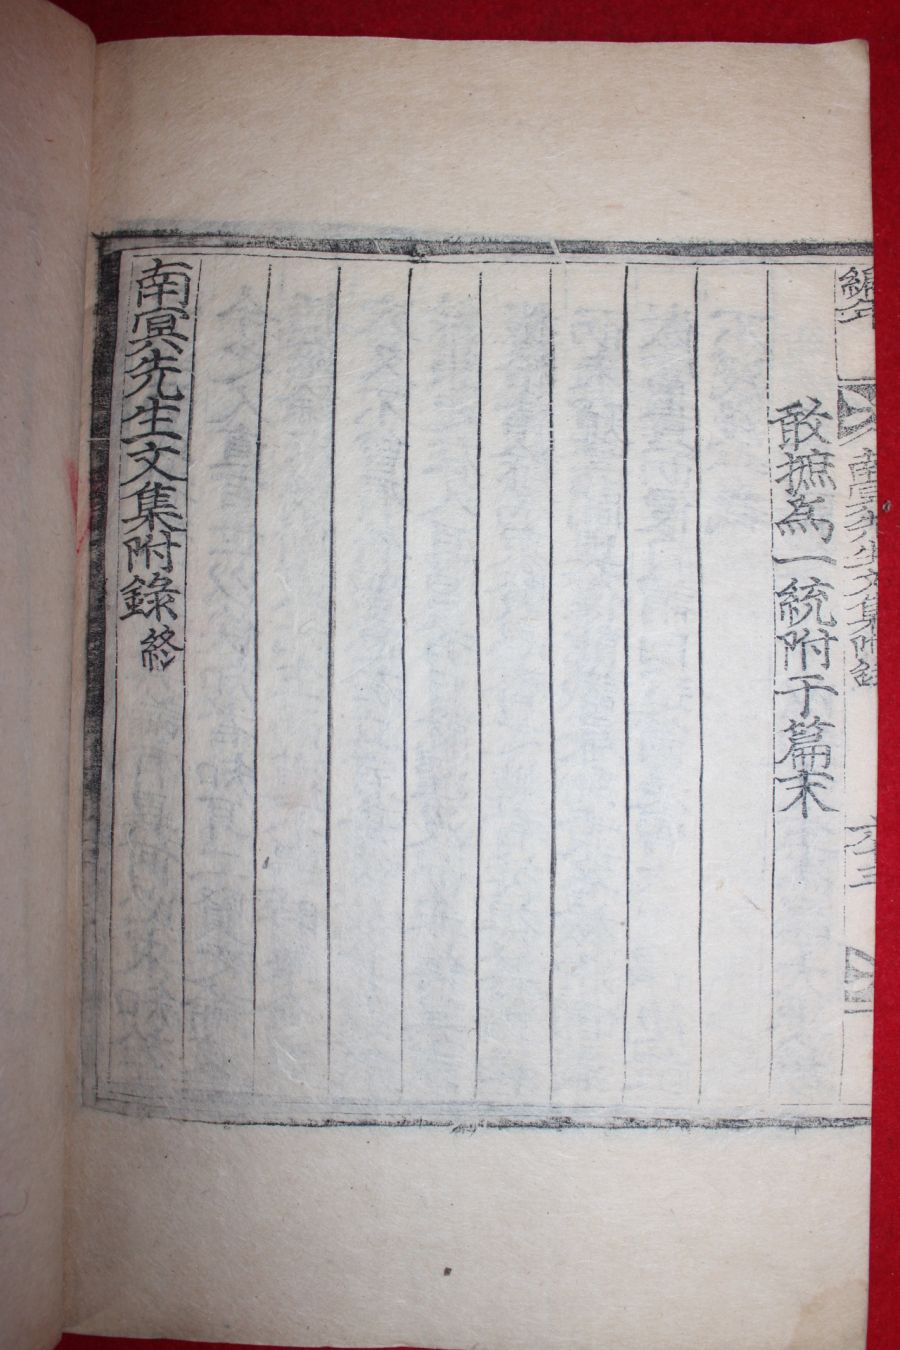 編年
南冥先生文集附錄
六三
敢摭爲一統附于篇末
南冥先生文集附錄終